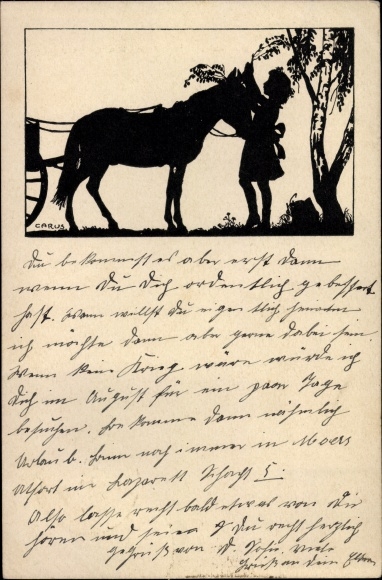 CARUS
Du bekommst es aber erst dann
wenn Du Dich ordentlich gebessert
hast. Wann willst Du eigentlich heiraten
ich möchte dann aber gerne dabei sein.
Wenn kein Krieg wäre würde ich
Dich im August für ein paar Tage
besuchen. Bekomme dann nämlich
Urlaub. Bin noch immer in Moers
im Lazarett Schacht 5.
Also lasse recht bald etwas von Dir
hören und sei Du recht herzlich
gegrüßt von D. viele
Grüße an Dein